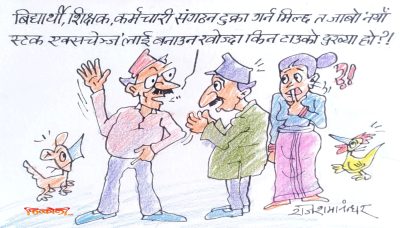 बिद्यार्थी, शिक्षक, कर्मचारी संगठन टुक्रा गर्न मिल्छ त जाबो 'नयाँ
स्टक एक्सचेञ्ज'लाई बनाउन खोज्दा किन टाउको दुख्या हो?!
?!
राजेशमानन्धर